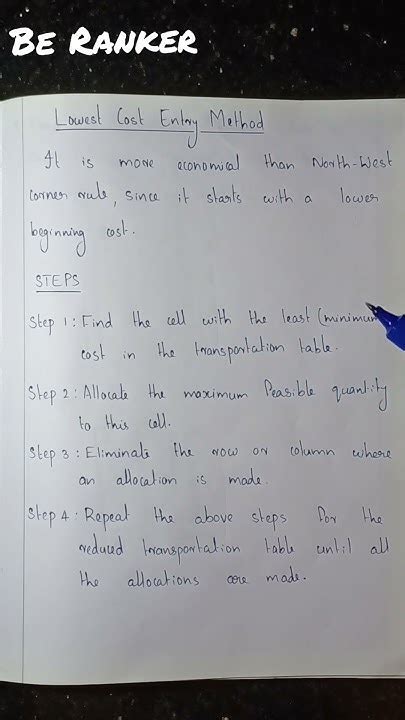 BE RANKER
Lowest Cost Entry Method
It is more economical than North-West
corner rule, since it starts with a lower
beginning cost.
STEPS
Step 1: Find the cell with the least (minimum
cost in the transportation table.
Step 2: Allocate the maximum feasible quantity
to this cell.
Step 3: Eliminate the row or column where
an allocation is made.
Step 4: Repeat the above steps for the
reduced transportation table until all
the allocations are made.